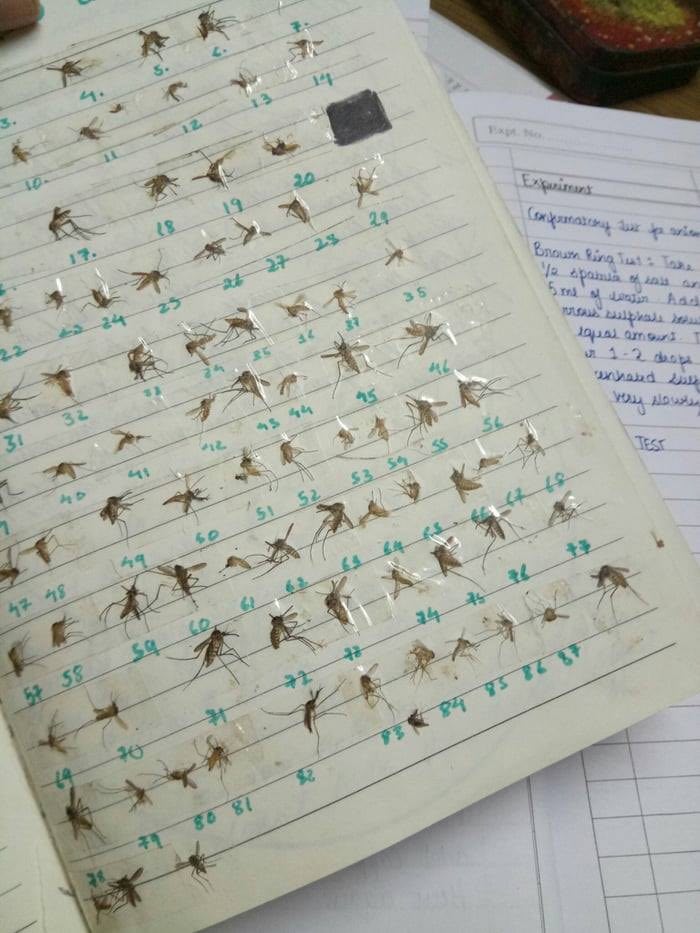 3. 4. 5. 6. 7.
10. 11 12 13 14
17. 18 19 20
22 23 24 25 26 27 28 29
31 32 33 34 35 36 37 35
40 41 42 43 44 45 46
47 48 49 50 51 52 53 54 55 56
57 58 59 60 61 62 63 64 65 66 67 68
69 70 71 72 73 74 75 76 77
78 79 80 81 82 83 84 85 86 87
Expt. No.
Experiment
Confirmatory Test for anion
Brown Ring Test : Take
1/2 spatula of salt an
5 ml of water. Add
rrous sulphate solu
equal amount. T
r 1-2 drops
sulp
very slowly
TEST